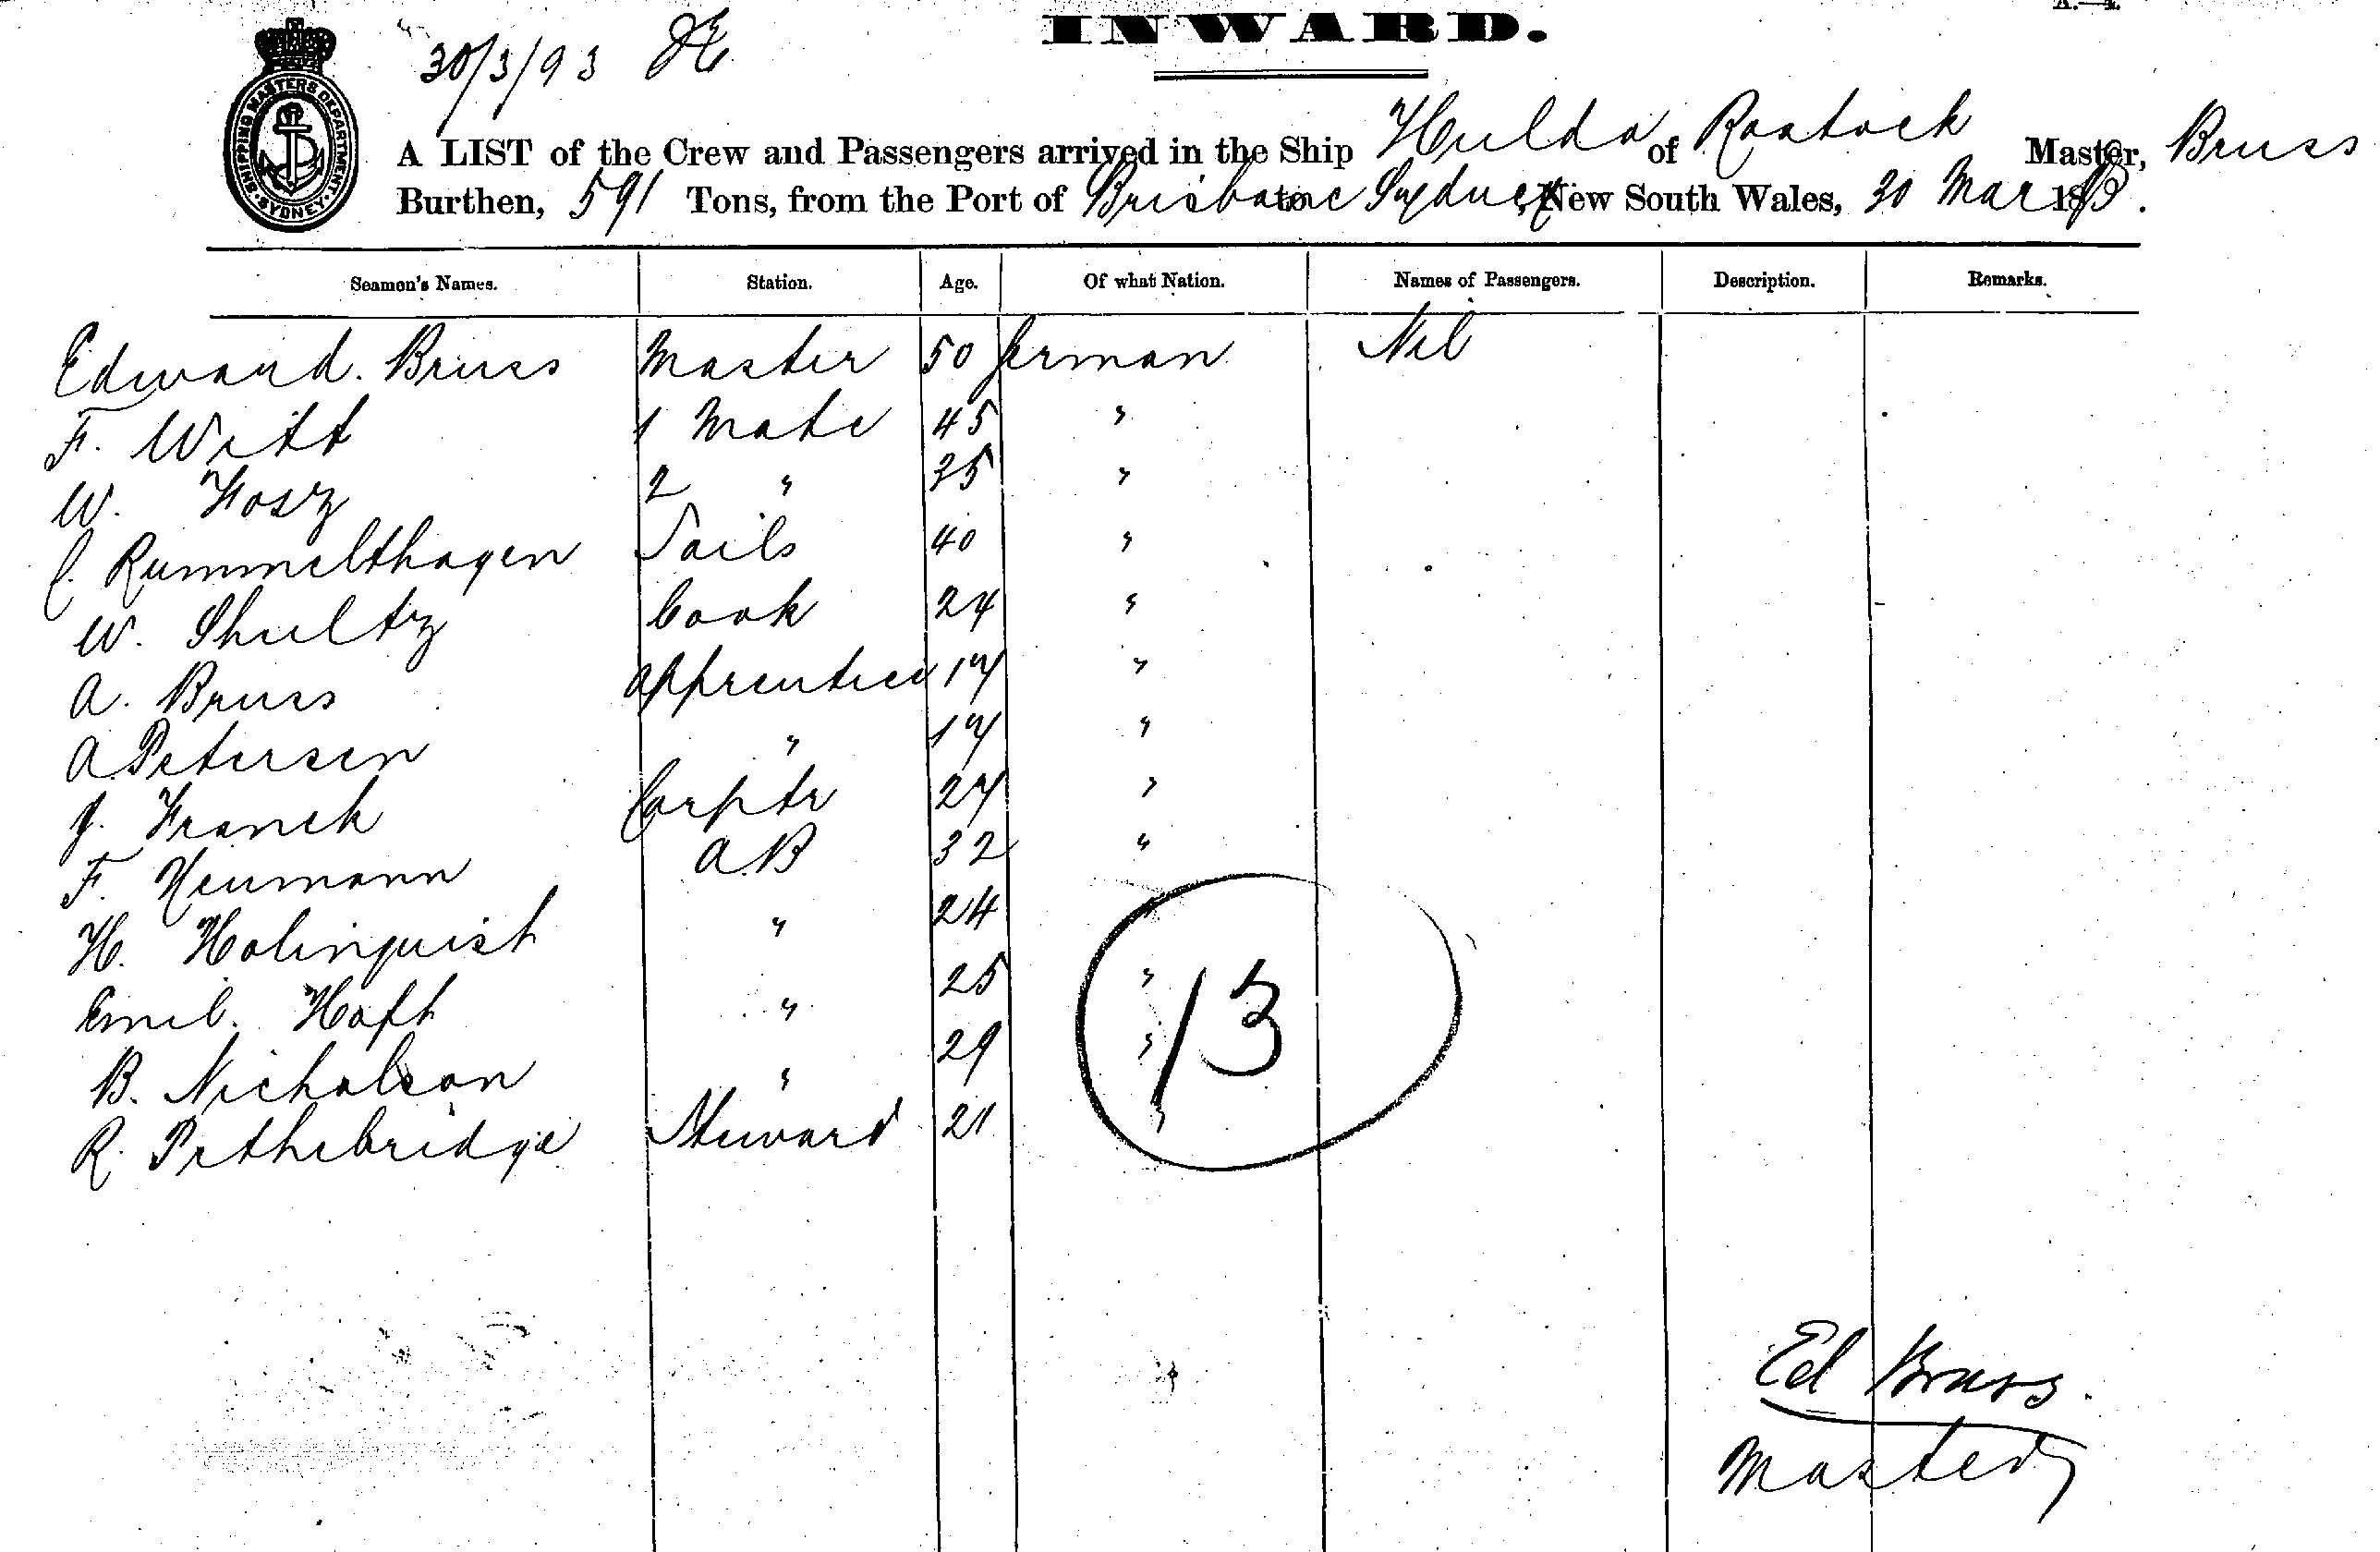 INWARD.
30/3/93
SHIPPING MASTERS DEPARTMENT SYDNEY
A LIST of the Crew and Passengers arrived in the Ship Hulda of Rostock Master, Bruss
Burthen, 591 Tons, from the Port of Brisbane to Sydney, New South Wales, 30 Mar 1893.
Seamen's Names. Station. Age. Of what Nation. Names of Passengers. Description. Remarks.
Edward. Bruss Master 50 German Nil
F. Witt 1 Mate 45 "
W. 2 " 25 "
C. Rummelthagen Sails 40 "
W. Shultz Cook 24 "
A. Bruss apprentice 17 "
A. Petersen " 17 "
J. Franck Carptr 27 "
F. Neumann A.B 32 "
H. Holinquist " 24 "
Emil. Hoft " 25 "
B. Nicholson " 29 "
R. Pethebridge Steward 21 "
13
Ed Bruss.
Master